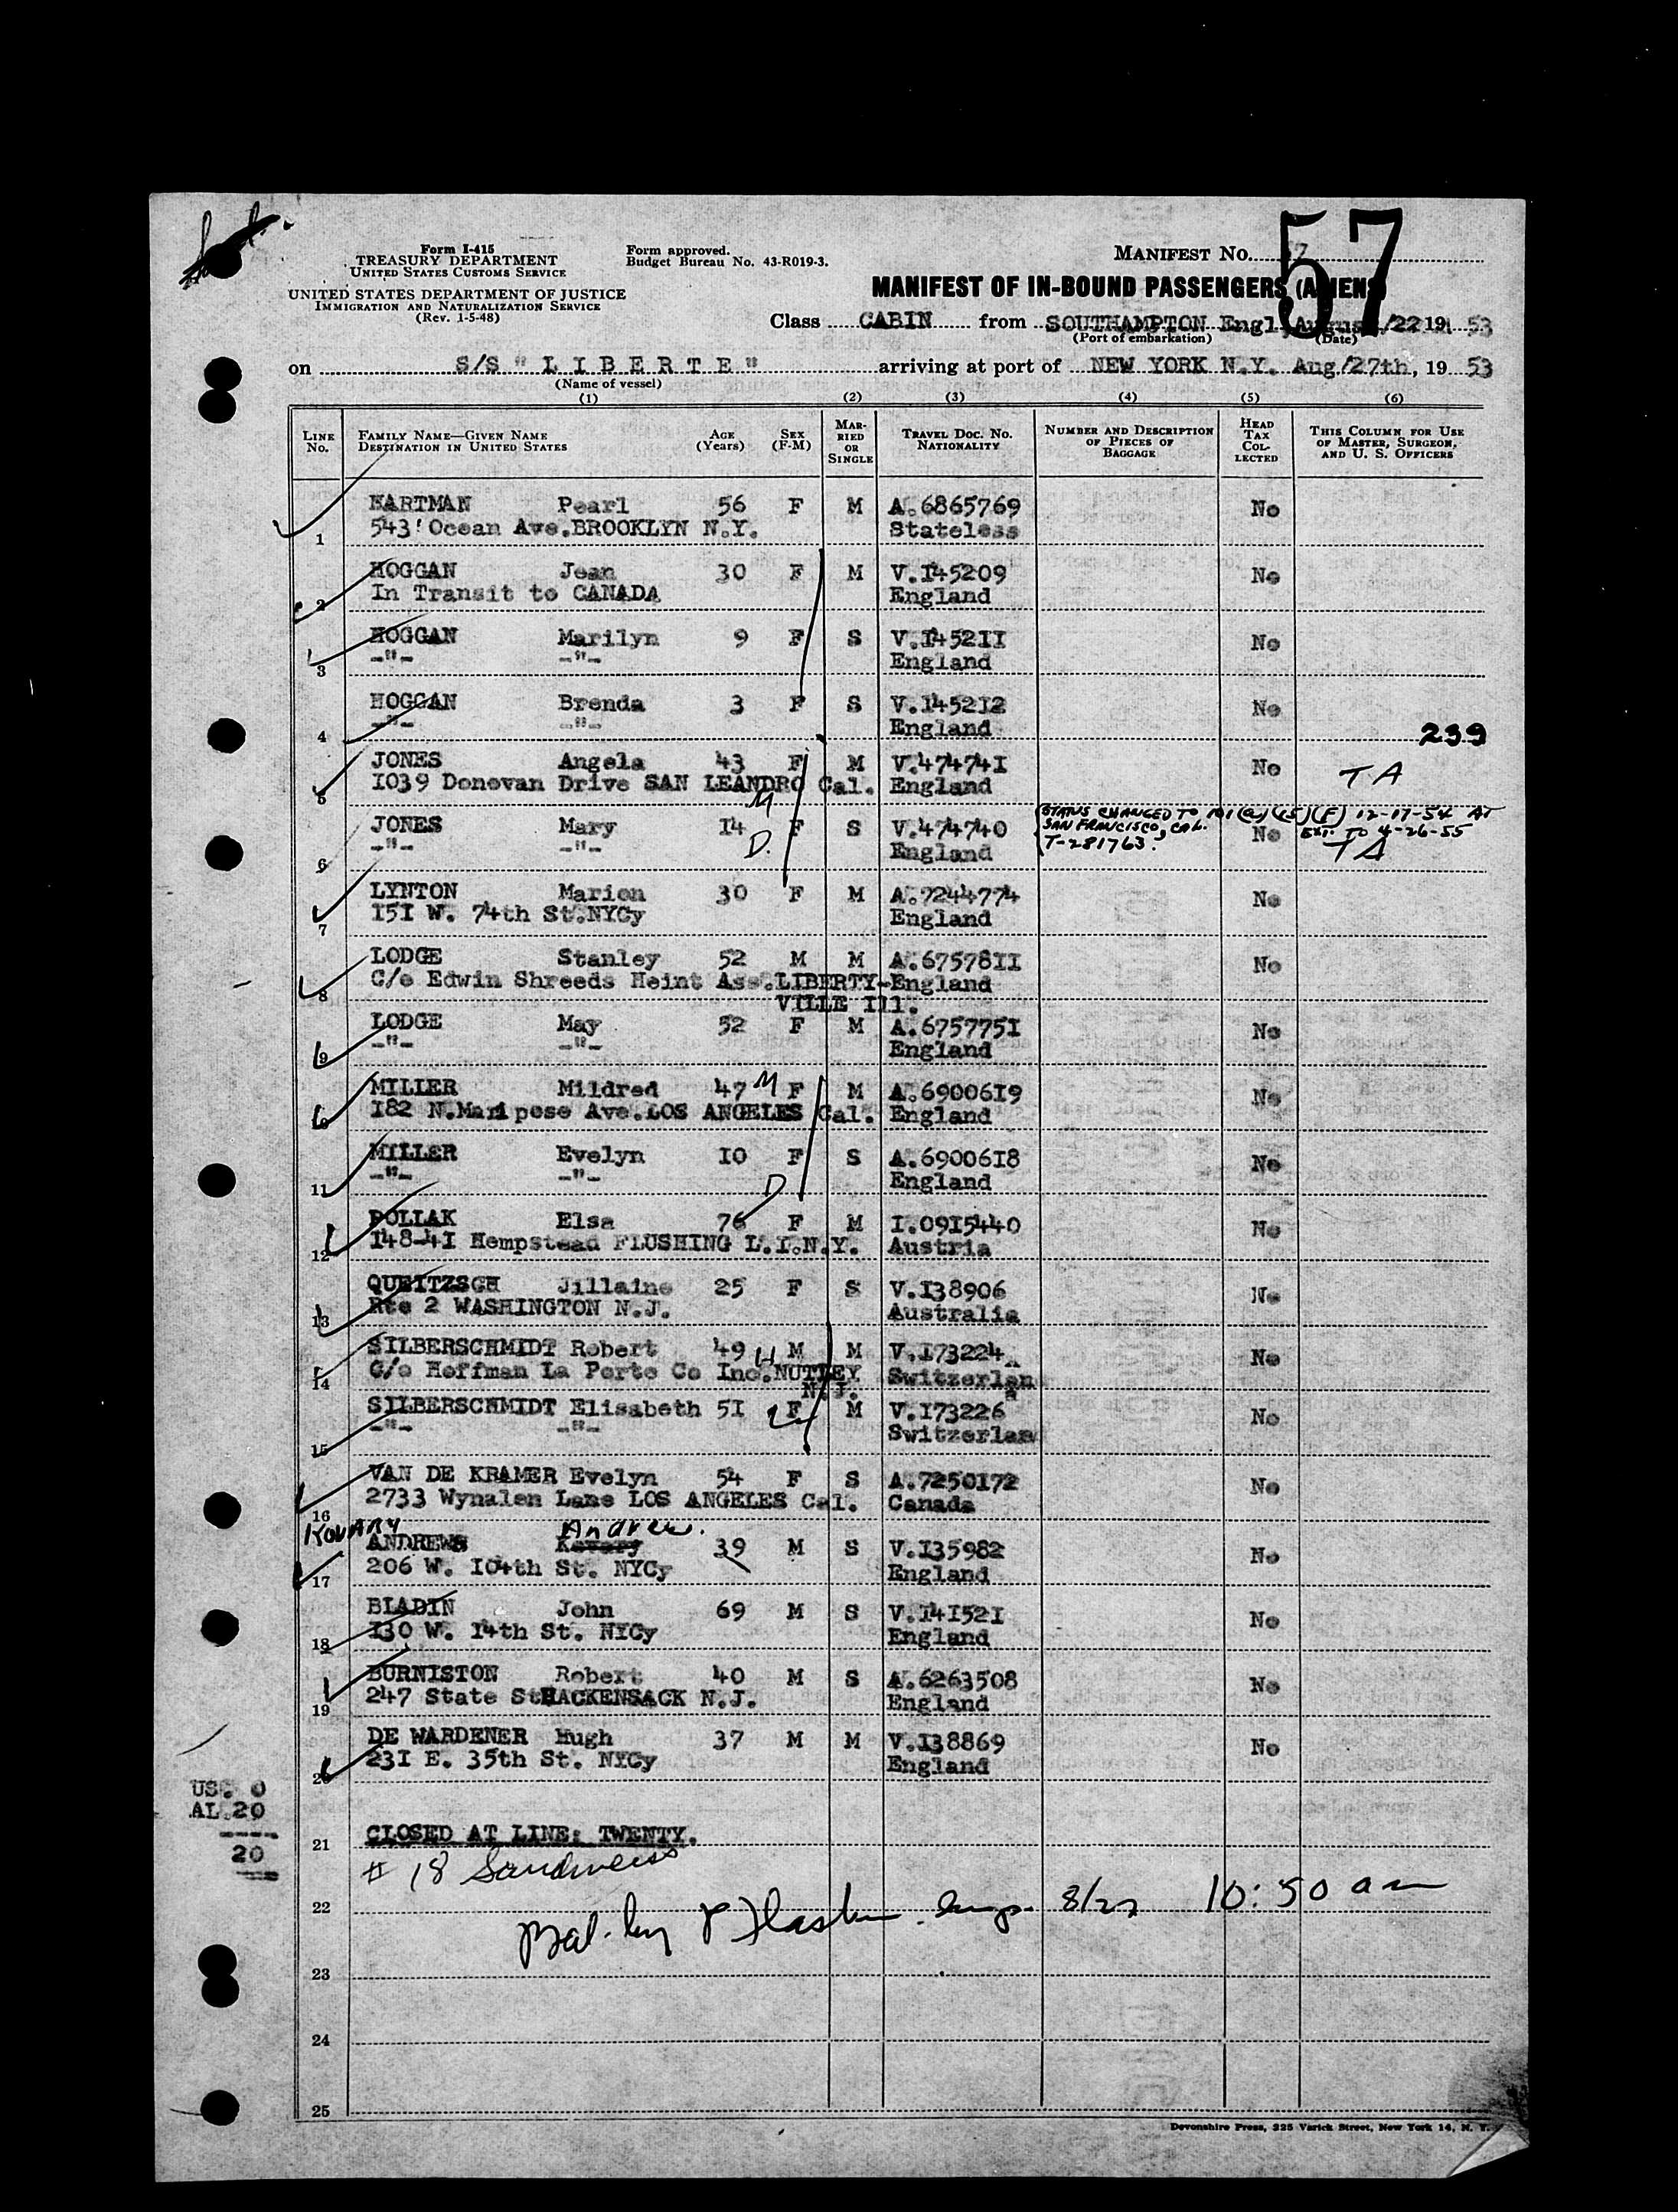 Form I-415
TREASURY DEPARTMENT
UNITED STATES CUSTOMS SERVICE
UNITED STATES DEPARTMENT OF JUSTICE
IMMIGRATION AND NATURALIZATION SERVICE
(Rev. 1-5-48)
Form approved.
Budget Bureau No. 43-R019-3.
MANIFEST No. 57
57
MANIFEST OF IN-BOUND PASSENGERS (ALIENS)
Class CABIN from SOUTHAMPTON Engl August/22 19 53
(Port of embarkation) (Date)
on S/S " L I B E R T E " arriving at port of NEW YORK N.Y. Aug/27th, 19 53
(Name of vessel)
(1) (2) (3) (4) (5) (6)
LINE No. FAMILY NAME—GIVEN NAME DESTINATION IN UNITED STATES AGE (Years) SEX (F-M) MARRIED OR SINGLE TRAVEL DOC. NO. NATIONALITY NUMBER AND DESCRIPTION OF PIECES OF BAGGAGE HEAD TAX COLLECTED THIS COLUMN FOR USE OF MASTER, SURGEON, AND U. S. OFFICERS
HARTMAN Pearl 56 F M A.6865769 No
1 543 Ocean Ave.BROOKLYN N.Y. Stateless
HOGGAN Jean 30 F M V.145209 No
2 In Transit to CANADA England
HOGGAN Marilyn 9 F S V.145211 No
3 -"- -"- England
HOGGAN Brenda 3 F S V.145212 No
4 -"- -"- England
239
JONES Angela 43 F M V.474741 No TA
5 1039 Donovan Drive SAN LEANDRO Cal. England
M
STATUS CHANGED TO 101(a)(15)(F) 12-17-54 AT
SAN FRANCISCO, CAL. EXT. TO 4-26-55
T-281763.
JONES Mary 14 F S V.474740 No TA
6 -"- -"- D. England
LYNTON Marion 30 F M A.7244774 No
7 151 W. 74th St.NYCy England
LODGE Stanley 52 M M A.6757811 No
8 C/o Edwin Shreeds Heint Ass.LIBERTY- England
VILLE Ill.
LODGE May 52 F M A.6757751 No
9 -"- -"- England
MILLER Mildred 47 M F M A.6900619 No
10 182 N.Maripose Ave.LOS ANGELES Cal. England
MILLER Evelyn 10 F S A.6900618 No
11 -"- -"- D England
POLLAK Elsa 76 F M I.0915440 No
12 148-41 Hempstead FLUSHING L.I.N.Y. Austria
QUEITZSCH Jillaine 25 F S V.138906 No
13 Rte 2 WASHINGTON N.J. Australia
SILBERSCHMIDT Robert 49 H M M V.173224 No
14 C/o Hoffman La Porte Co Inc.NUTLEY Switzerland
N.J.
SILBERSCHMIDT Elisabeth 51 F M V.173226 No
15 -"- -"- Switzerland
VAN DE KRAMER Evelyn 54 F S A.7250172 No
16 2733 Wynalen Lane LOS ANGELES Cal. Canada
KOVARY Andrew.
ANDREWS Kovary 39 M S V.135982 No
17 206 W. 104th St. NYCy England
BLADIN John 69 M S V.141521 No
18 130 W. 14th St. NYCy England
BURNISTON Robert 40 M S A.6263508 No
19 247 State St HACKENSACK N.J. England
DE WARDENER Hugh 37 M M V.138869 No
20 231 E. 35th St. NYCy England
US. 0
AL.20
----
20
21 CLOSED AT LINE: TWENTY.
# 18 Sandweiss
22 Bal. by 8/27 10:50 am
23
24
25
Devonshire Press, 225 Varick Street, New York 14, N. Y.